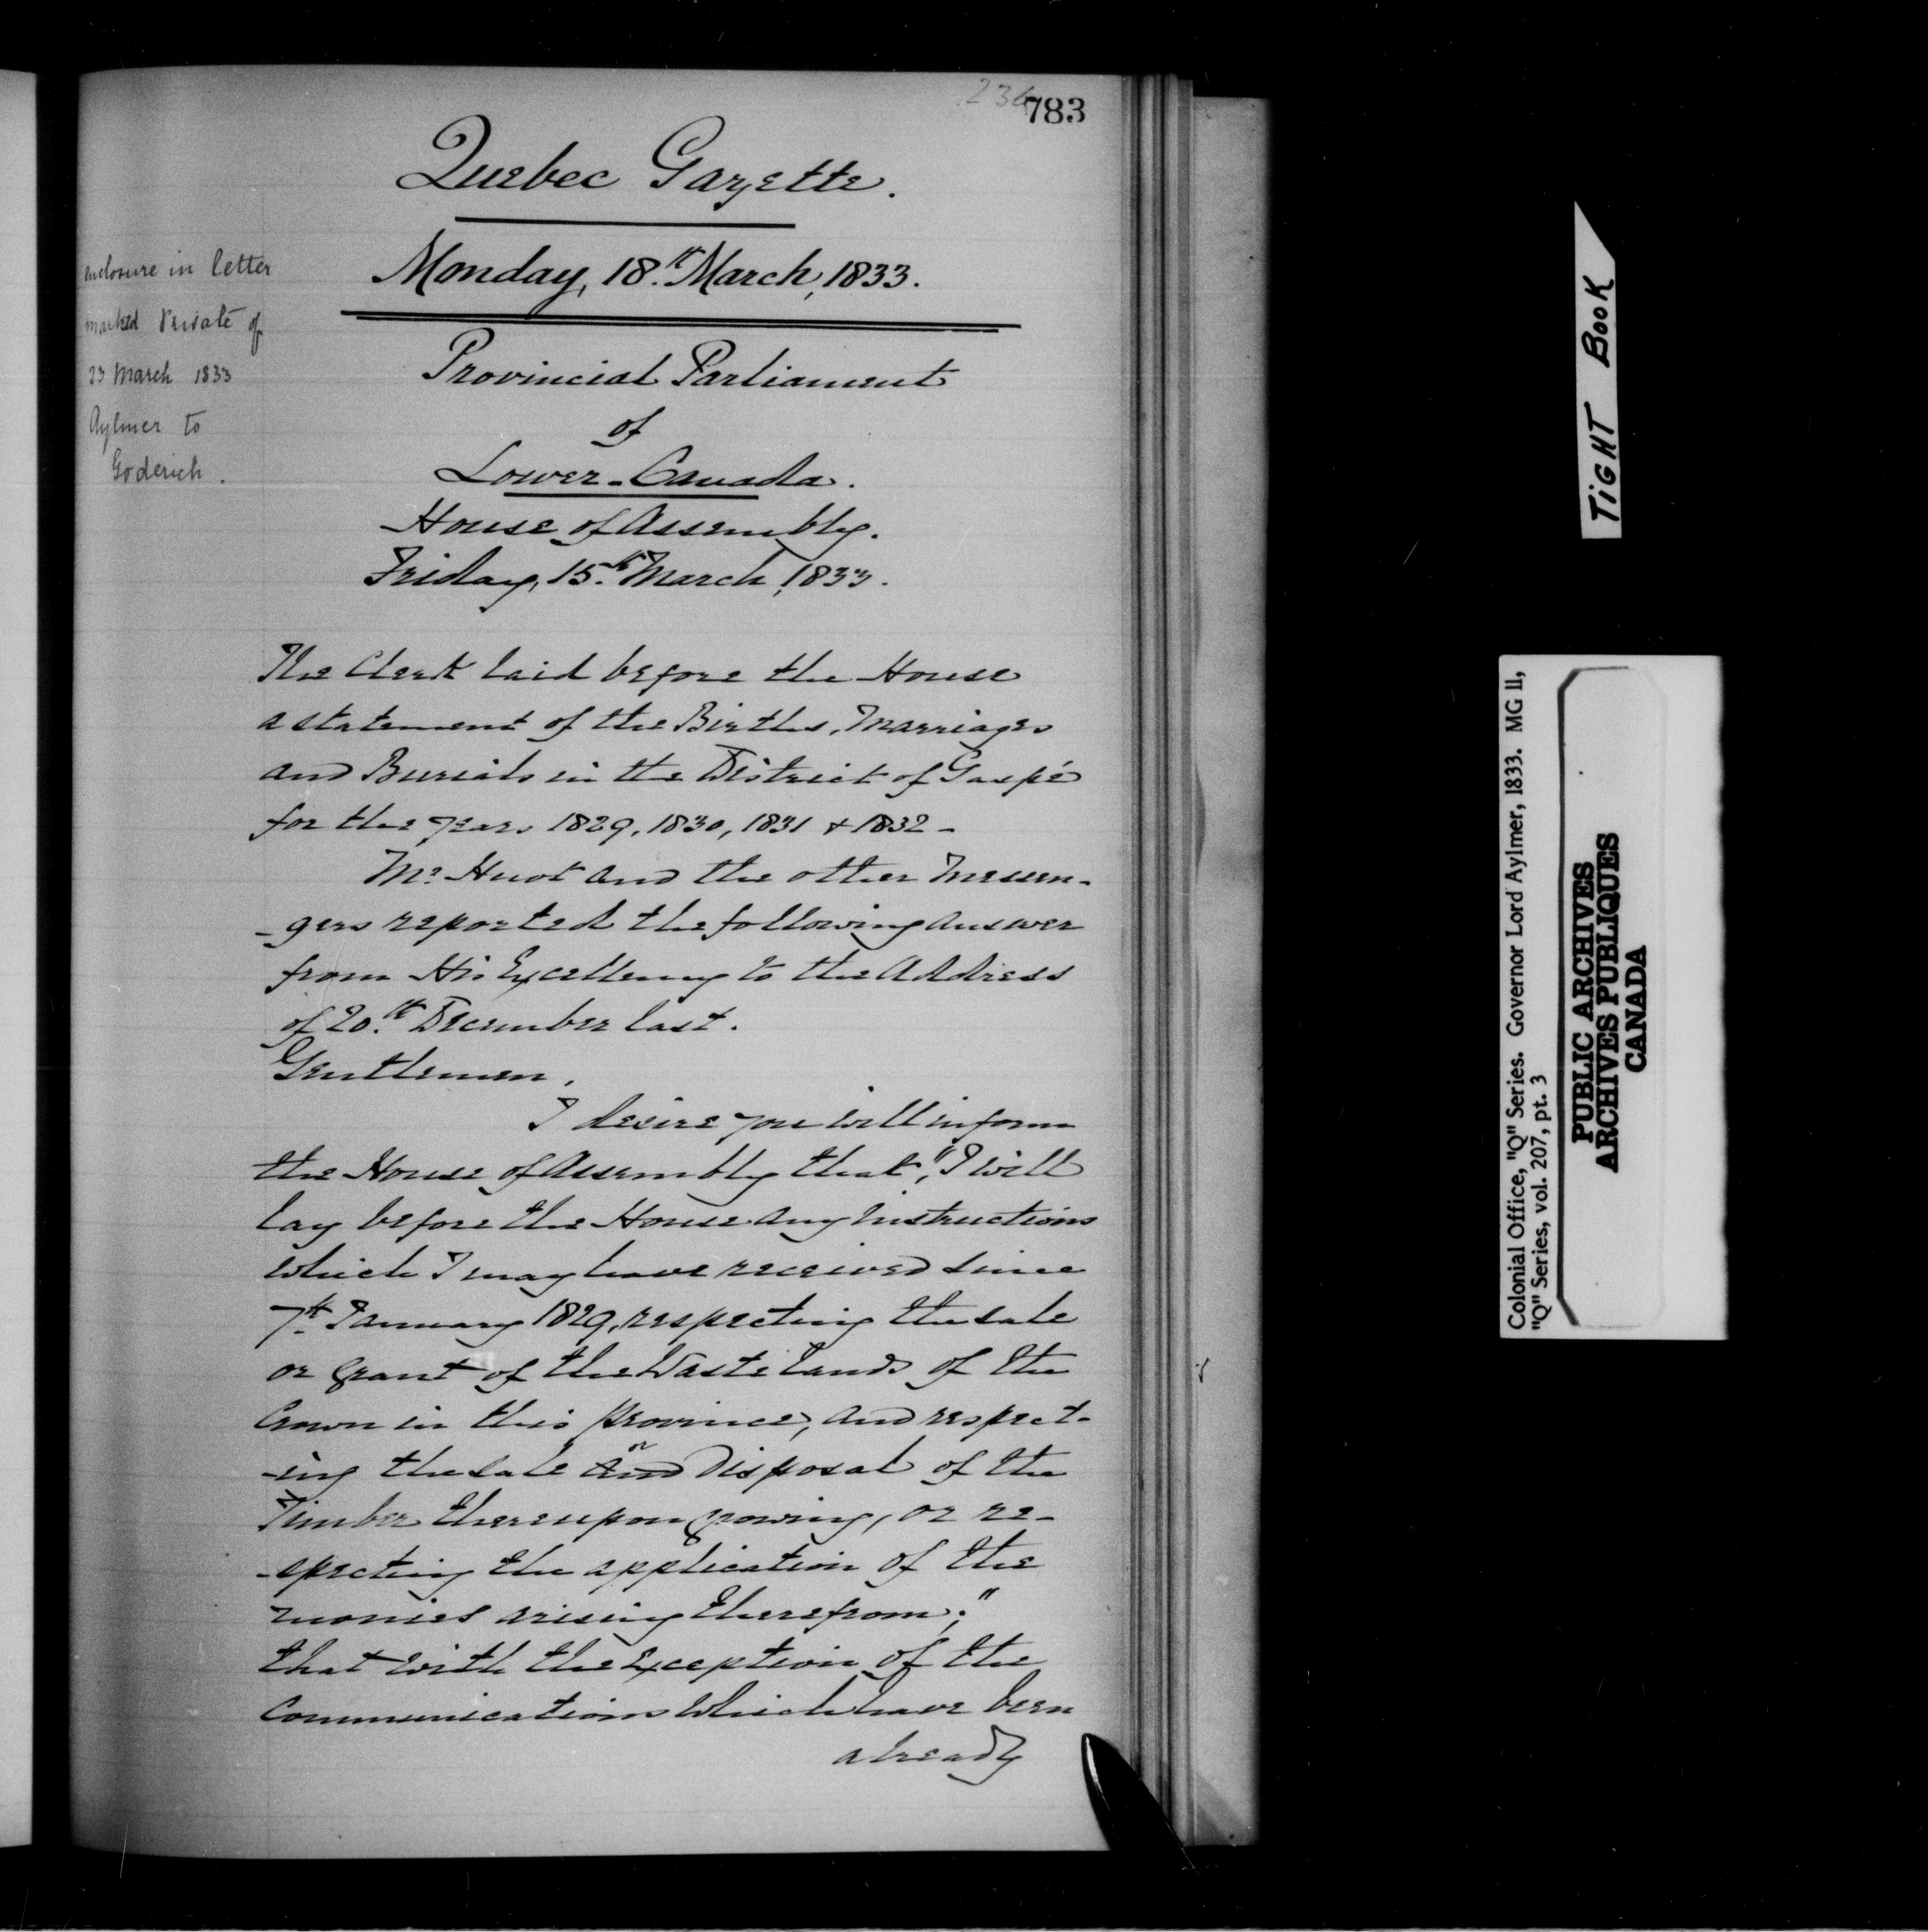 783
Quebec Gazette.
Monday, 18.th March, 1833.
enclosure in letter
marked Private of
23 March 1833
Aylmer to
Goderich.
Provincial Parliament
of
Lower-Canada.
House of Assembly.
Friday, 15.th March, 1833.
The Clerk laid before the House
a statement of the Births, Marriages
and Burials in the District of Gaspé
for the years 1829, 1830, 1831 & 1832 -
Mr. Huot and the other Messen-
-gers reported the following answer
from His Excellency to the Address
of 20.th December last.
Gentlemen,
I desire you will inform
the House of Assembly that, "I will
lay before the House any instructions
which I may have received since
7th January 1829, respecting the sale
or grant of the Waste lands of the
Crown in this province, and respect-
-ing the sale and or Disposal of the
Timber thereupon growing, or re-
-specting the application of the
monies arising therefrom;"
that with the exception of the
Communications which have been
already
TIGHT BOOK
Colonial Office, "Q" Series. Governor Lord Aylmer, 1833. MG 11,
"Q" Series, vol. 207, pt. 3
PUBLIC ARCHIVES
ARCHIVES PUBLIQUES
CANADA